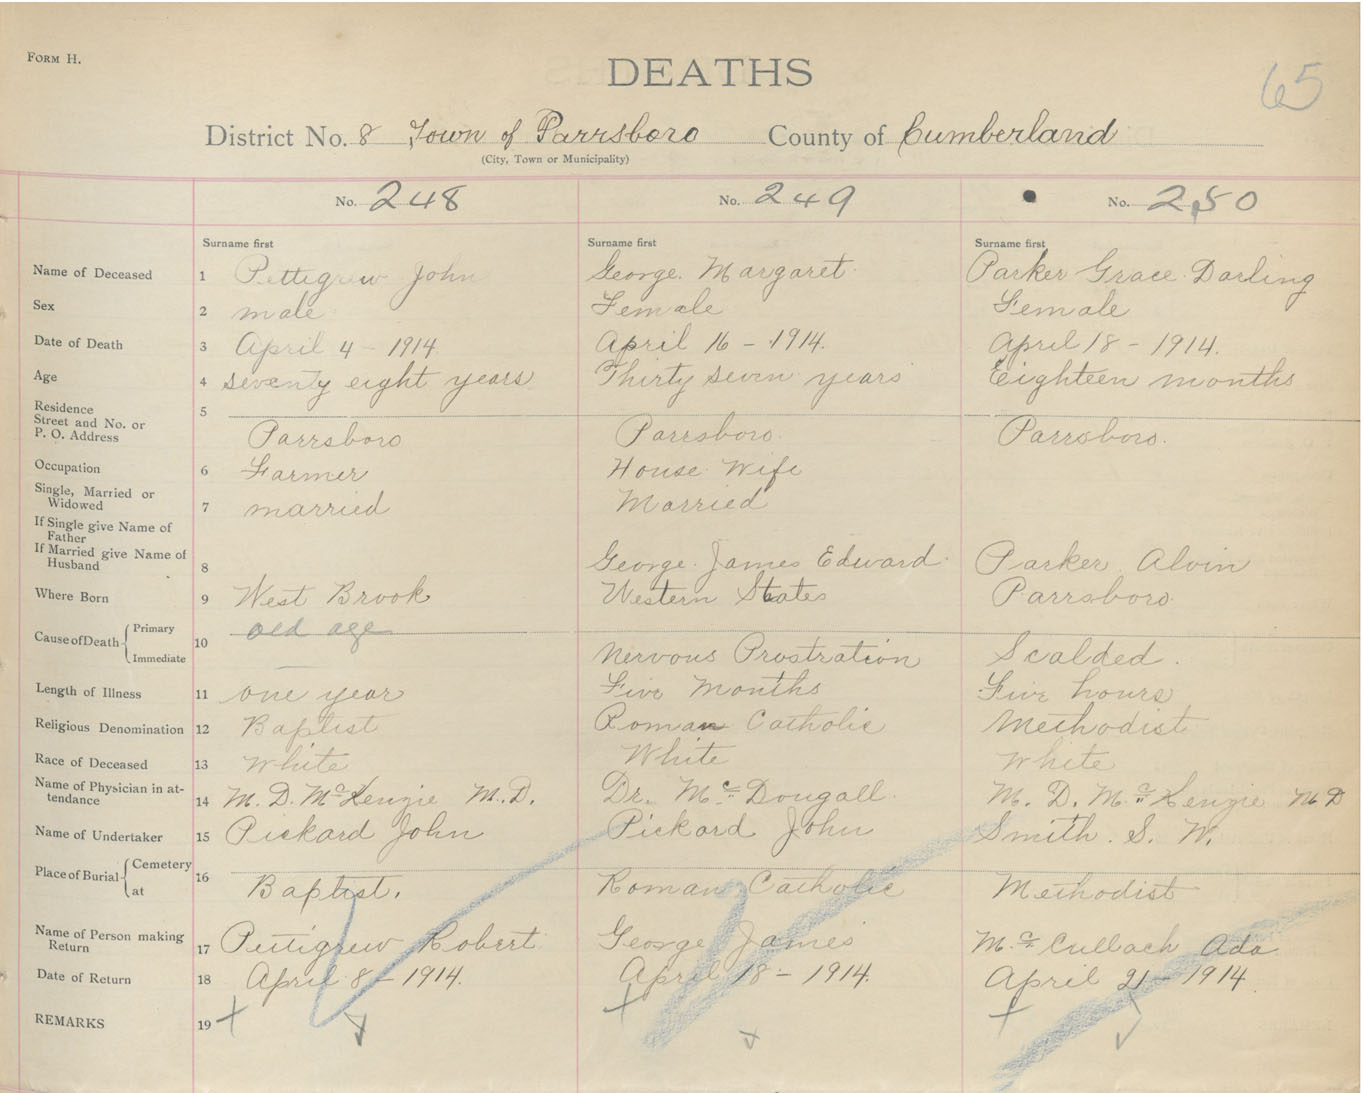 FORM H.
DEATHS
65
District No. 8 Town of Parrsboro County of Cumberland
(City, Town or Municipality)
No. 248 No. 249 No. 250
Surname first Surname first Surname first
Name of Deceased 1 Pettigrew John George. Margaret. Parker Grace Darling
Sex 2 male Female Female
Date of Death 3 April 4 - 1914 April 16 - 1914. April 18 - 1914.
Age 4 seventy eight years Thirty seven years Eighteen months
Residence 5
Street and No. or
P. O. Address Parrsboro Parrsboro. Parrsboro.
Occupation 6 Farmer House Wife
Single, Married or
Widowed 7 married Married
If Single give Name of
Father
If Married give Name of
Husband 8 George. James Edward. Parker Alvin
Where Born 9 West Brook Western States Parrsboro.
Cause of Death Primary 10 old age
Immediate Nervous Prostration Scalded.
Length of Illness 11 one year Five Months Five hours
Religious Denomination 12 Baptist Roman Catholic Methodist
Race of Deceased 13 White White White
Name of Physician in at-
tendance 14 M. D. McKenzie M.D. Dr. Mc Dougall. M. D. McKenzie M D
Name of Undertaker 15 Pickard John Pickard John Smith. S. W.
Place of Burial Cemetery 16
at Baptist. Roman Catholic Methodist
Name of Person making
Return 17 Pettigrew Robert George James Mc Cullach Ada
Date of Return 18 April 8 - 1914. April 18 - 1914. April 21 - 1914
REMARKS 19